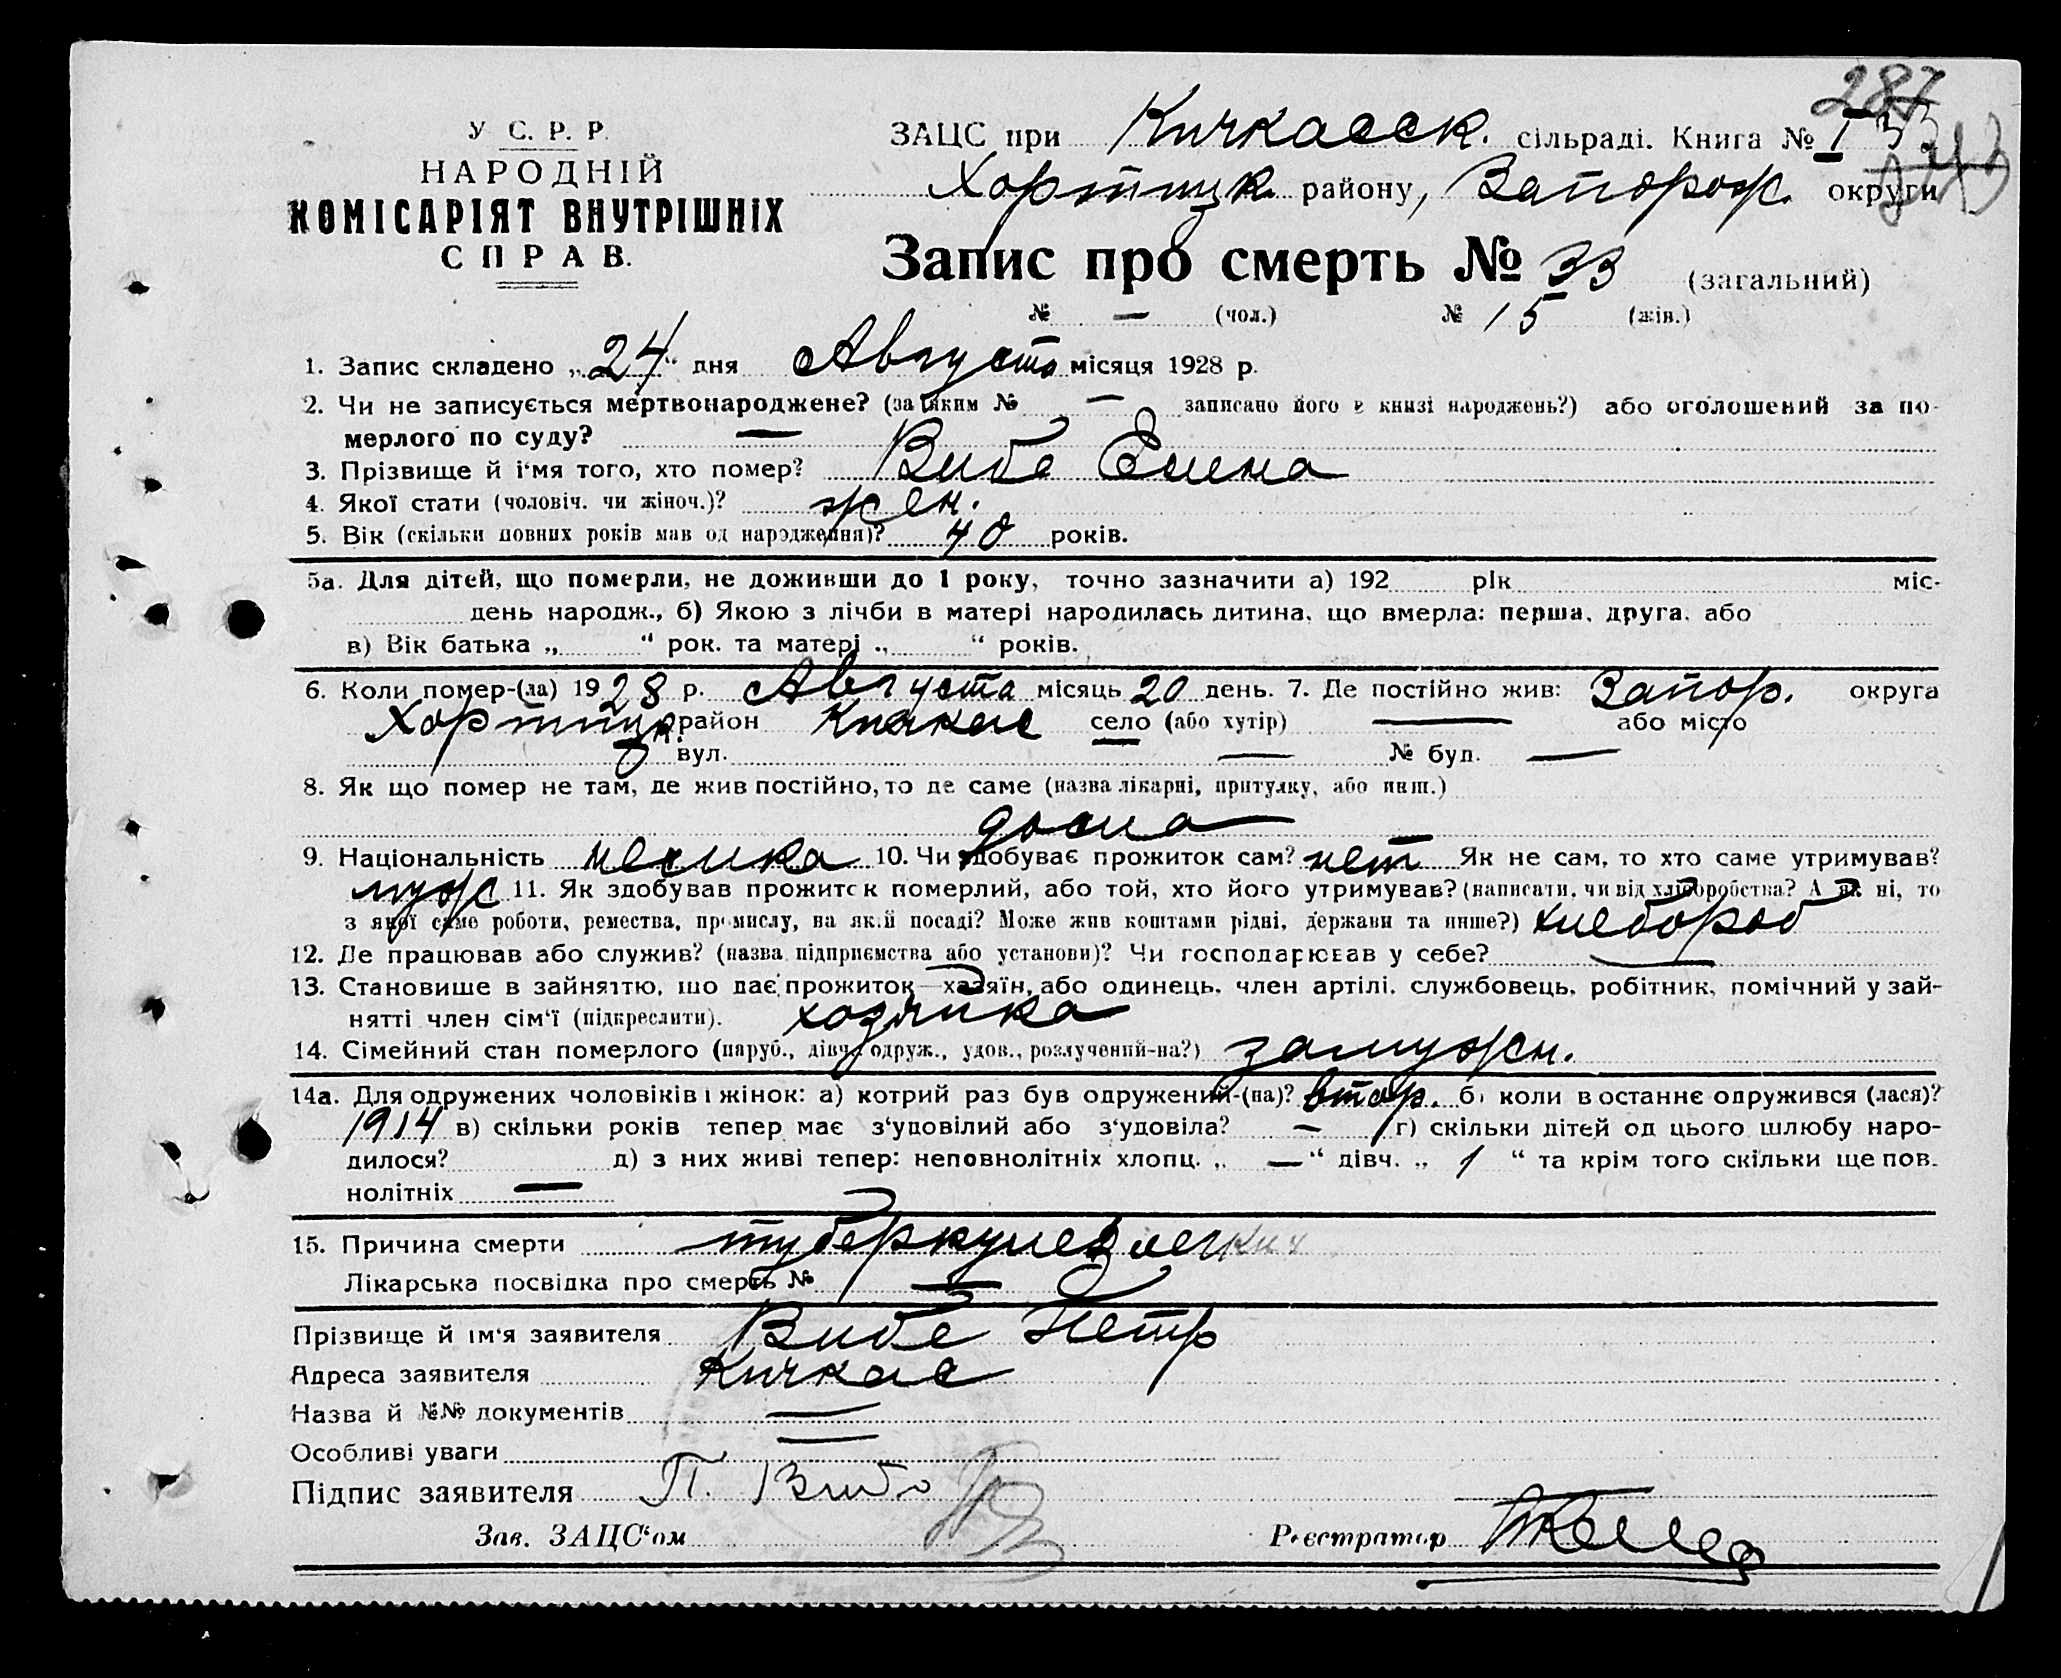 287
У С. Р. Р.
НАРОДНІЙ
КОМІСАРІЯТ ВНУТРІШНІХ
СПРАВ.
ЗАЦС при Кичкасск. сільраді. Книга № I
Хортицк. району, Запорож. округи
Запис про смерть № 33 (загальний)
№ — (чол.) № 15 (жін.)
1. Запис складено „24“ дня Августа місяця 1928 р.
2. Чи не записується мертвонароджене? (за яким № — записано його в книзі народжень?) або оголошений за по-
мерлого по суду? —
3. Прізвище й ім'я того, хто помер? Вибе Елена
4. Якої стати (чоловіч. чи жіноч.)? жен.
5. Вік (скільки повних років мав од народження)? 40 років.
5а. Для дітей, що померли, не доживши до 1 року, точно зазначити а) 192 рік міс-
день народж., б) Якою з лічби в матері народилась дитина, що вмерла: перша, друга, або
в) Вік батька „ “ рок. та матері „ “ років.
6. Коли помер-(ла) 1928 р. Августа місяць 20 день. 7. Де постійно жив: Запор. округа
Хортицк. район Кичкас село (або хутір) — або місто
вул. — № буд. —
8. Як що помер не там, де жив постійно, то де саме (назва лікарні, притулку, або инш.)
дома
9. Національність немка 10. Чи здобуває прожиток сам? нет Як не сам, то хто саме утримував?
муж 11. Як здобував прожиток померлий, або той, хто його утримував? (написати, чи від хліборобства? А як ні, то
з якої саме роботи, ремества, промислу, на якій посаді? Може жив коштами рідні, держави та инше?) хлебороб
12. Де працював або служив? (назва підприємства або установи)? Чи господарював у себе? —
13. Становище в зайняттю, що дає прожиток—хазяїн, або одинець, член артілі, службовець, робітник, помічний у зай-
нятті член сім'ї (підкреслити). хозяйка
14. Сімейний стан померлого (паруб., дівч., одруж., удов., розлучений-на?) замужн.
14а. Для одружених чоловіків і жінок: а) котрий раз був одружений-(на)? втор. б) коли востаннє одружився (лася)?
1914 в) скільки років тепер має з'удовілий або з'удовіла? — г) скільки дітей од цього шлюбу наро-
дилося? д) з них живі тепер: неповнолітніх хлопц. „ — “ дівч. „ 1 “ та крім того скільки ще пов-
нолітніх —
15. Причина смерти туберкулез легких
Лікарська посвідка про смерть № —
Прізвище й ім'я заявителя Вибе Петр
Адреса заявителя Кичкас
Назва й №№ документів —
Особливі уваги —
Підпис заявителя П. Вибе
Зав. ЗАЦС'ом Реєстратор